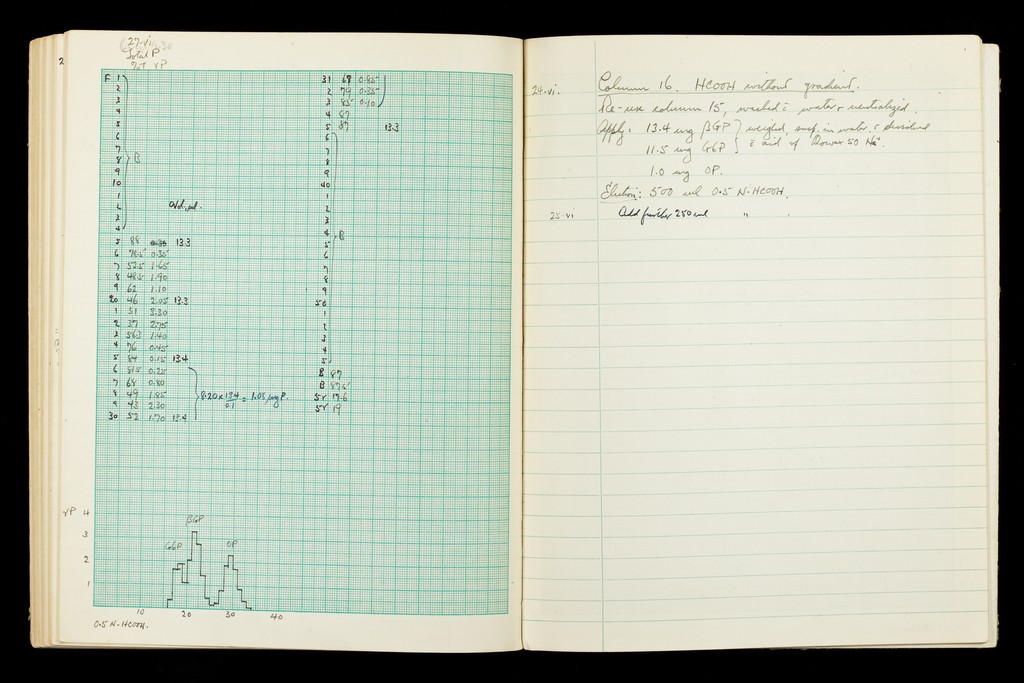 2
27-vi
Total P
γP
F 1
2
3
4
5
6
7
8 B
9
10
1
2 Vol., ml.
3
4
5 88 13.3
6 78.5 0.35
7 52.5 1.65
8 48.5 1.90
9 62 1.10
20 46 2.05 13.3
1 31 3.30
2 37 2.75
3 56.5 1.40
4 76 0.45
5 84 0.15 13.4
6 81.5 0.25
7 68 0.80
8 49 1.85
9 43 2.30
30 52 1.70 13.4
8.20 x 13.4 / 0.1 = 1.08 mg P.
31 67 0.85
2 79 0.35
3 85 0.10
4 87
5 87 13.3
6
7
8
9
40
1
2
3
4 B
5
6
7
8
9
50
1
2
3
4
5
B 87
B 87.5
5γ 17.6
5γ 19
γP 4
3
2
1
G6P βGP OP
10 20 30 40
0.5 N-HCOOH.
24.vi. Column 16. HCOOH without gradient.
Re-use column 15, washed c̄ water & neutralized.
Apply: 13.4 mg βGP } weighed, susp. in water, & dissolved
11.5 mg G6P } c̄ aid of Dowex 50 H+.
1.0 mg OP.
Elution: 500 ml 0.5 N-HCOOH.
25-vi Add further 250 ml " .